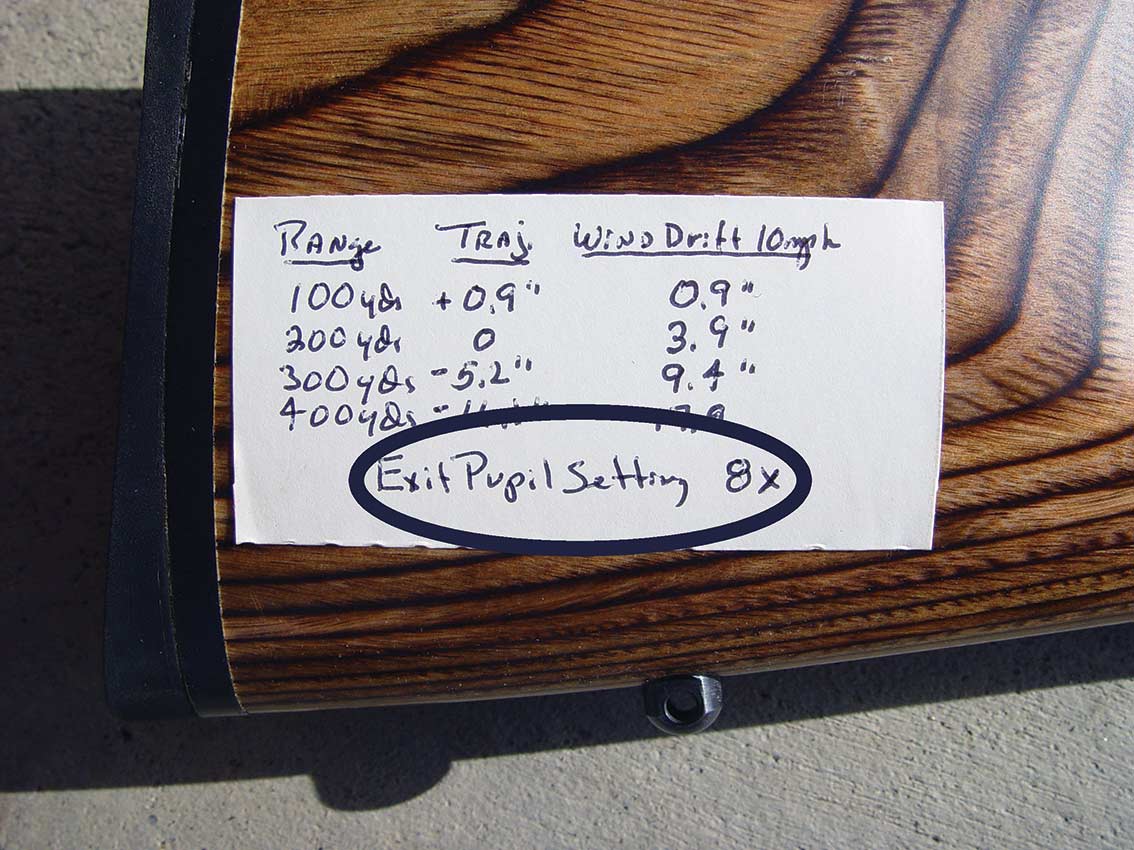 Range Traj. Wind Drift 10mph
100yds +0.9" 0.9"
200yds 0 3.9"
300yds -5.2" 9.4"
400yds
Exit Pupil Setting 8x